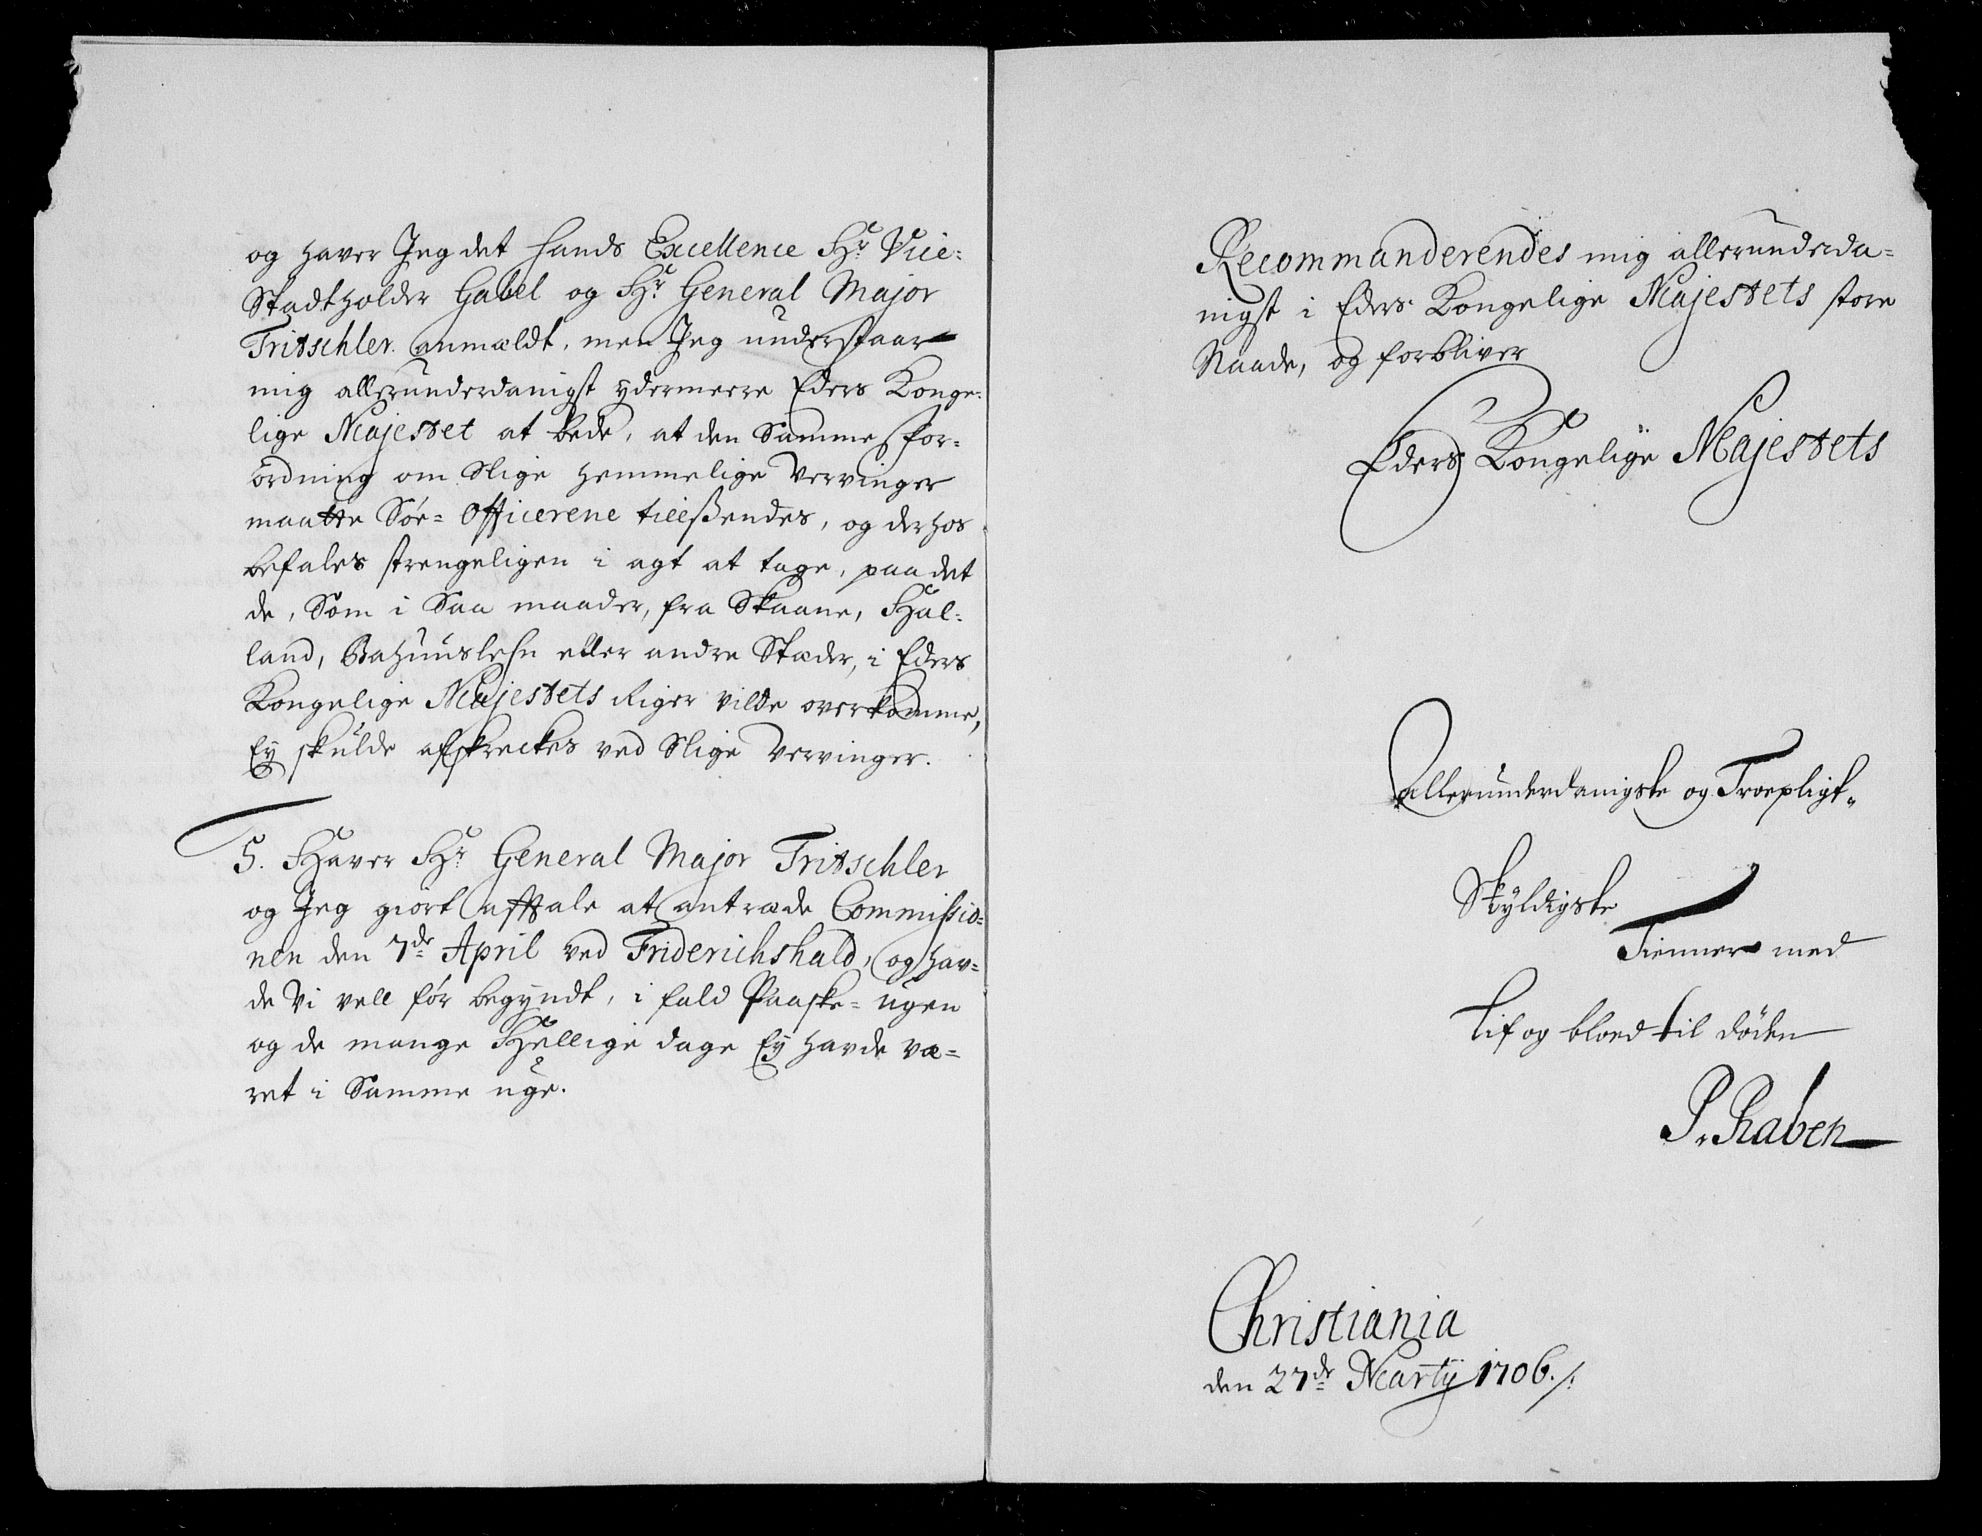 og haver Jeg det hands Excellence Hr Vice-
Stadtholder Gabel og Hr General Major
Tritschler anmældt, men Jeg understaar
mig allerunderdanigst ydermeere Eders Konge-
lige Majestet at bede, at den Samme for-
ordning om Slige hemmelige Verringer
maatte Söe-Officerene tillSendes, og derhos
befales strengeligen i agt at tage, paa det
de, Som i Saa maader, fra Skaane, Hal-
land, Bahuuslehn eller andre Stæder, i Eders
Kongelige Majestets Riger vilde overkomme,
Ey skulde afskreckes ved Slige Verringer.
5. Haver Hr General Major Tritschler
og Jeg giort afftale at antræde Commissio-
nen den 7de April ved Friderichshald, og hav-
de Vi vell før begyndt, i fald Paaske-ugen
og de mange Hellige dage Ey havde væ-
ret i Samme uge.
Recommanderendes mig allerunderda-
nigst i Eders Kongelige Majestets store
Naade, og forbliver
Eders Kongelige Majestets
allerunderdanigste og Troepligt-
Skyldigste
Tienner med
Lif og bloed til døden
P. Raben
Christiania
den 27de Martij 1706./.